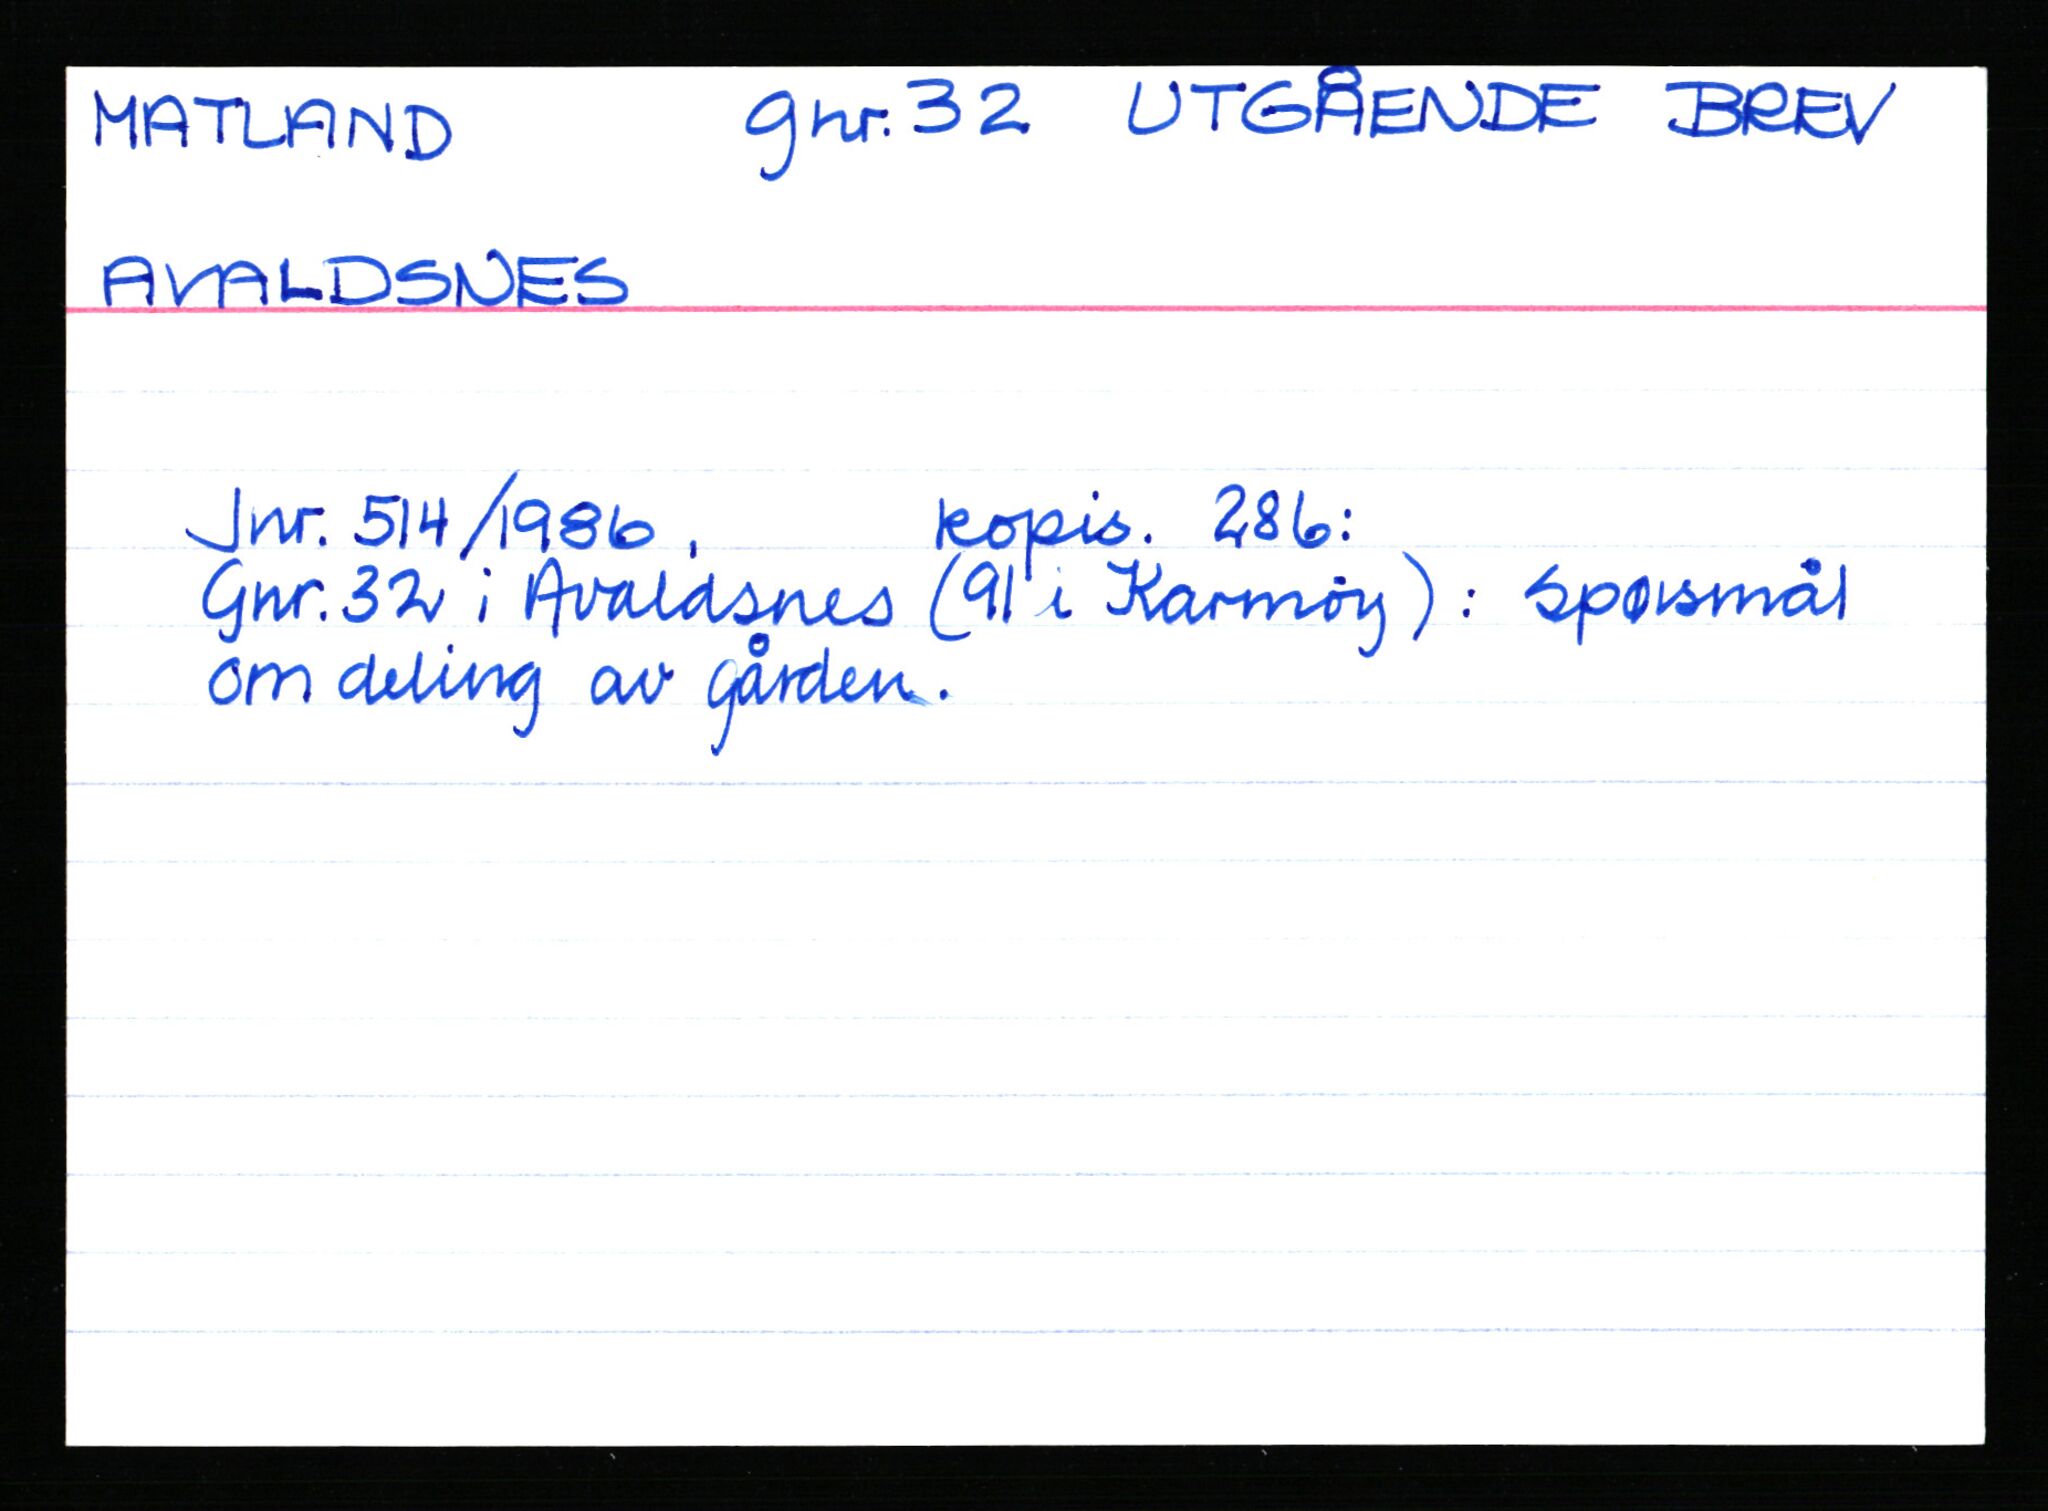 MATLAND gnr. 32 UTGÅENDE BREV
AVALDSNES
Jnr. 514/1986, kopis. 286:
Gnr. 32 i Avaldsnes (91 i Karmøy): Spørsmål
om deling av gården.